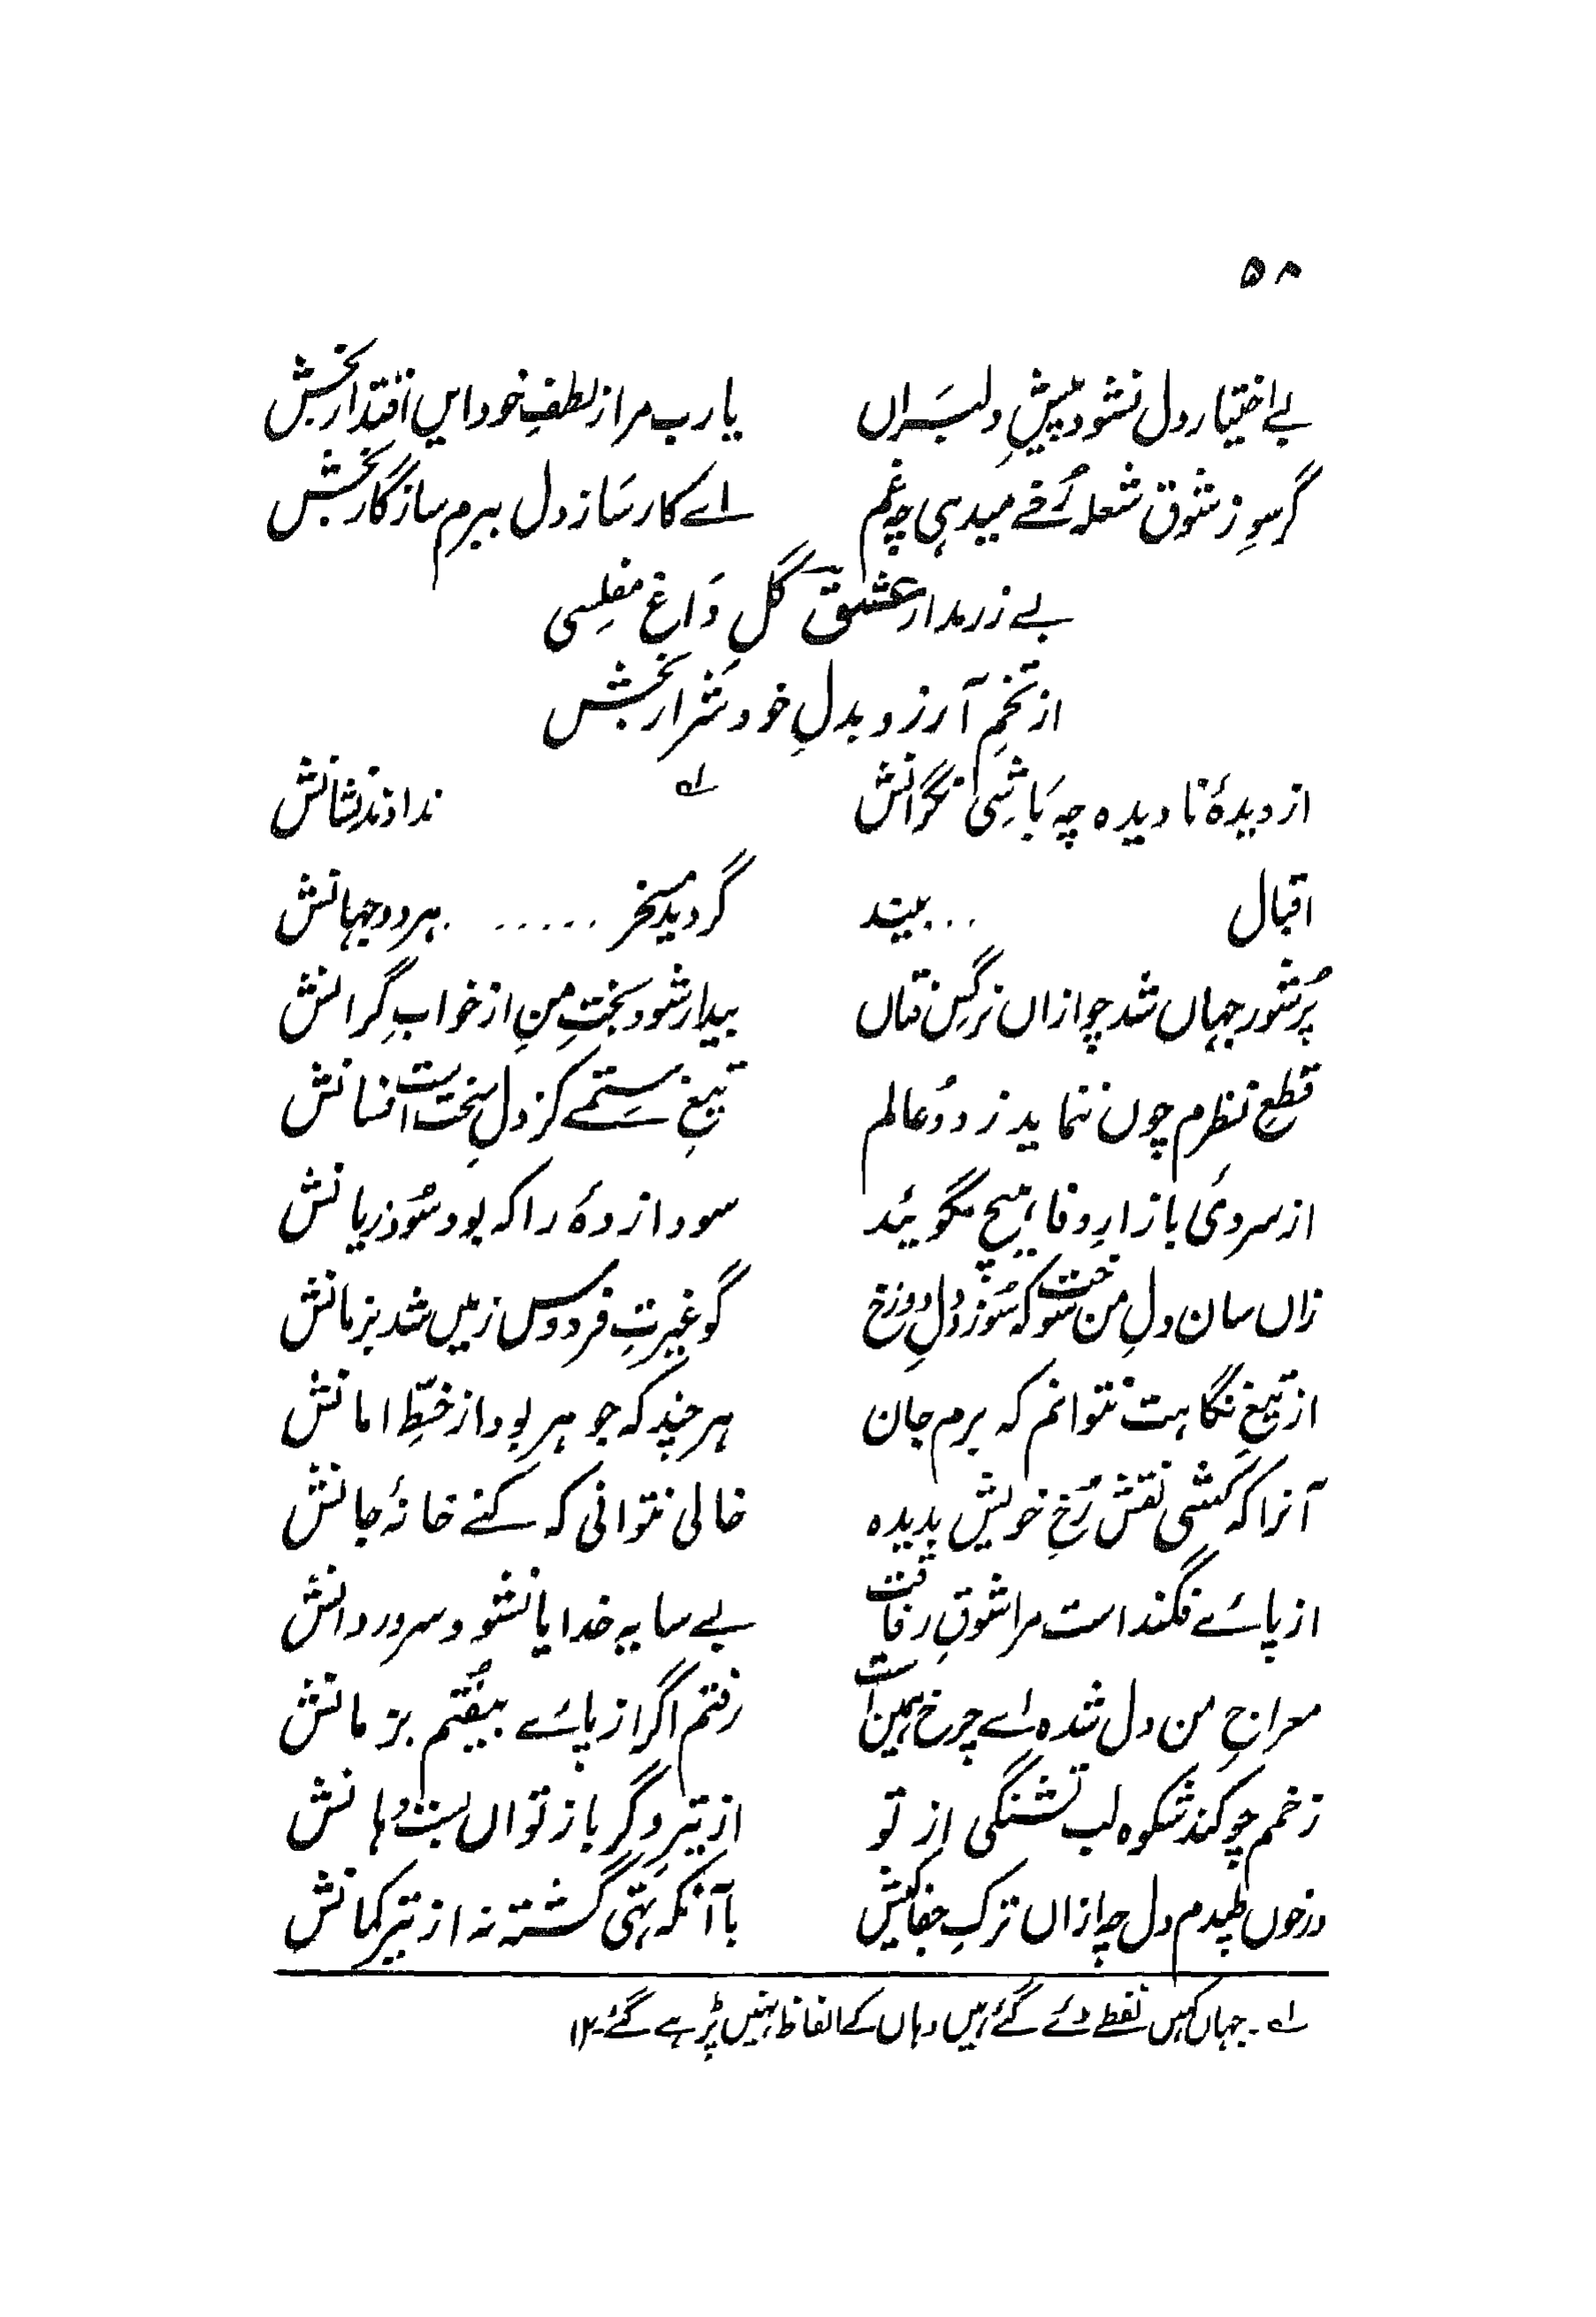 ۵۸
بے اختیار دل نشود پیشِ دلبَراں یا رب مرا ز لطفِ خود ایں اقتدار بخش
گر سوزِ شوق شعلہ رُخے میدہی چہ غم اے کارسَاز دل ببرم سازگار بخش
بے زر مدار عشق گلِ دَاغِ مفلِسی
از تخمِ آرزو بدلِ خود شرار بخش
از دیدۂ نادیدہ چہ بَاشِی نگرانش ؎۱ ندادند نشانش
اقبال ... بیند گردید مسخر ...... ہر دو جہانش
پُرشور جہاں شد چو ازاں نرگسِ فتاں بیدار شود بختِ من از خوابِ گرانش
قطعِ نظرم چوں ننماید ز دو عالم تیغِ سِتمے کز دلِ سخت است فسانش
از سردیٔ بازارِ وفا ہیچ مگوئید سودا زدۂ را کہ بود سُود زیانش
زاں سان دلِ من سوخت کہ سُوزد دلِ دوزخ گو غیرتِ فردوس زمیں شد بزمانش
از تیغِ نگاہت نتوانم کہ برم جان ہر چند کہ جوہر بود از خطِّ امانش
آنرا کہ کَشی نقش رُخِ خویش بدیدہ خالی نتوانی کہ کنے خانۂ جانش
از پائے فگند است مرا شوقِ رفاقت بے سایہ خدایا نشود سرو روانش
معراجِ من دل شدہ اے چرخ ہمین است رفتم اگر از پائے بیفُتم بز مانش
زخمم چو کند شکوہ لب تشنگی از تو از تیرِ دگر باز تواں بست دُہانش
در خوں طپیدم دل چہ ازاں ترکِ جفاکیش با آنکہ تہی گشتہ نہ از تیر کمانش
؎۱۔ جہاں کہیں نقطے دئے گئے ہیں وہاں کے الفاظ نہیں پڑھے گئے۔۱۲